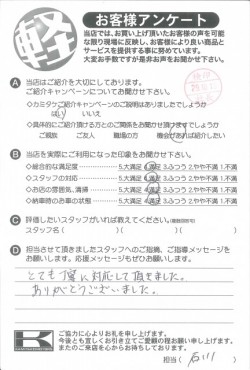 軽
お客様アンケート
当店では、お買い上げ頂いたお客様の声を可能
な限り現場に反映し、お客様により良い商品と
サービスを提供する事に努めています。
大変お手数ですが是非お声をお聞かせ下さい。
A 当店はご紹介を大切にしております。
ご紹介キャンペーンについてお聞かせ下さい。
◇カミタケご紹介キャンペーンのご説明はありましたでしょうか
はい いいえ
◇具体的にご紹介頂ける方とのご関係をお聞かせ頂けますでしょうか
ご親族 ご友人 職場の方 機会があれば紹介したい
B 当店を実際にご利用になった印象をお聞かせ下さい。
◇総合的な満足度 5.大満足 4.満足 3.ふつう 2.やや不満 1.不満
◇スタッフの対応 5.大満足 4.満足 3.ふつう 2.やや不満 1.不満
◇お店の雰囲気、清掃 5.大満足 4.満足 3.ふつう 2.やや不満 1.不満
◇納車時のお車の状態 5.大満足 4.満足 3.ふつう 2.やや不満 1.不満
C 評価したいスタッフがいれば教えてください。(複数回答可)
スタッフ名( )( )( )
D 担当させて頂きましたスタッフへのご指摘、ご指導メッセージを
お願いします。応援メッセージもぜひお願いします。
とても丁寧に対応して頂きました。
ありがとうございました。
K
ご協力に心よりお礼を申し上げます。
今後とも宜しくお引き立てご愛顧の程お願い申し上げます。
またのご来店を心からお待ちしております。
担当( 石川 )